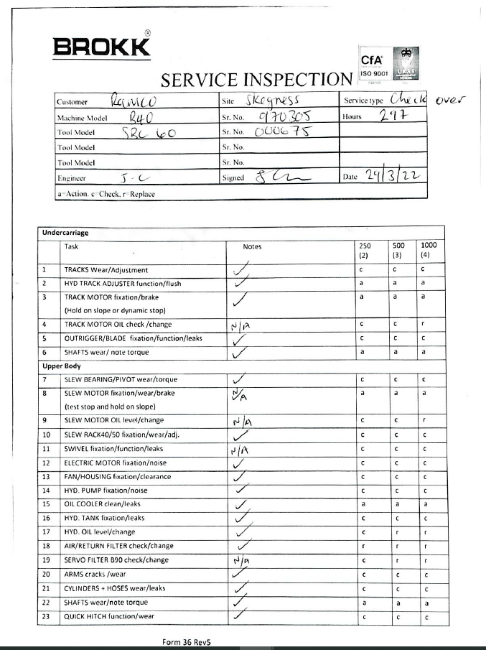 BROKK®
CfA
ISO 9001
UKAS
SERVICE INSPECTION
Customer Ramco Site Skegness Service type Check over
Machine Model R40 Sr. No. 970305 Hours 297
Tool Model SRC 60 Sr. No. 000675
Tool Model Sr. No.
Tool Model Sr. No.
Engineer J-C Signed Date 29/3/22
a=Action. c=Check, r=Replace
Undercarriage
Task Notes 250 (2) 500 (3) 1000 (4)
1 TRACKS Wear/Adjustment ✓ c c c
2 HYD TRACK ADJUSTER function/flush ✓ a a a
3 TRACK MOTOR fixation/brake ✓ a a a
(Hold on slope or dynamic stop)
4 TRACK MOTOR OIL check /change N/A c c r
5 OUTRIGGER/BLADE fixation/function/leaks ✓ c c c
6 SHAFTS wear/ note torque ✓ a a a
Upper Body
7 SLEW BEARING/PIVOT wear/torque ✓ c c c
8 SLEW MOTOR fixation/wear/brake N/A a a a
(test stop and hold on slope)
9 SLEW MOTOR OIL level/change N/A c c r
10 SLEW RACK40/50 fixation/wear/adj. ✓ c c c
11 SWIVEL fixation/function/leaks N/A c c c
12 ELECTRIC MOTOR fixation/noise ✓ c c c
13 FAN/HOUSING fixation/clearance ✓ c c c
14 HYD. PUMP fixation/noise ✓ c c c
15 OIL COOLER clean/leaks ✓ a a a
16 HYD. TANK fixation/leaks ✓ c c c
17 HYD. OIL level/change ✓ c r r
18 AIR/RETURN FILTER check/change ✓ r r r
19 SERVO FILTER B90 check/change N/A c r r
20 ARMS cracks /wear ✓ c c c
21 CYLINDERS + HOSES wear/leaks ✓ c c c
22 SHAFTS wear/note torque ✓ a a a
23 QUICK HITCH function/wear ✓ c c c
Form 36 Rev5